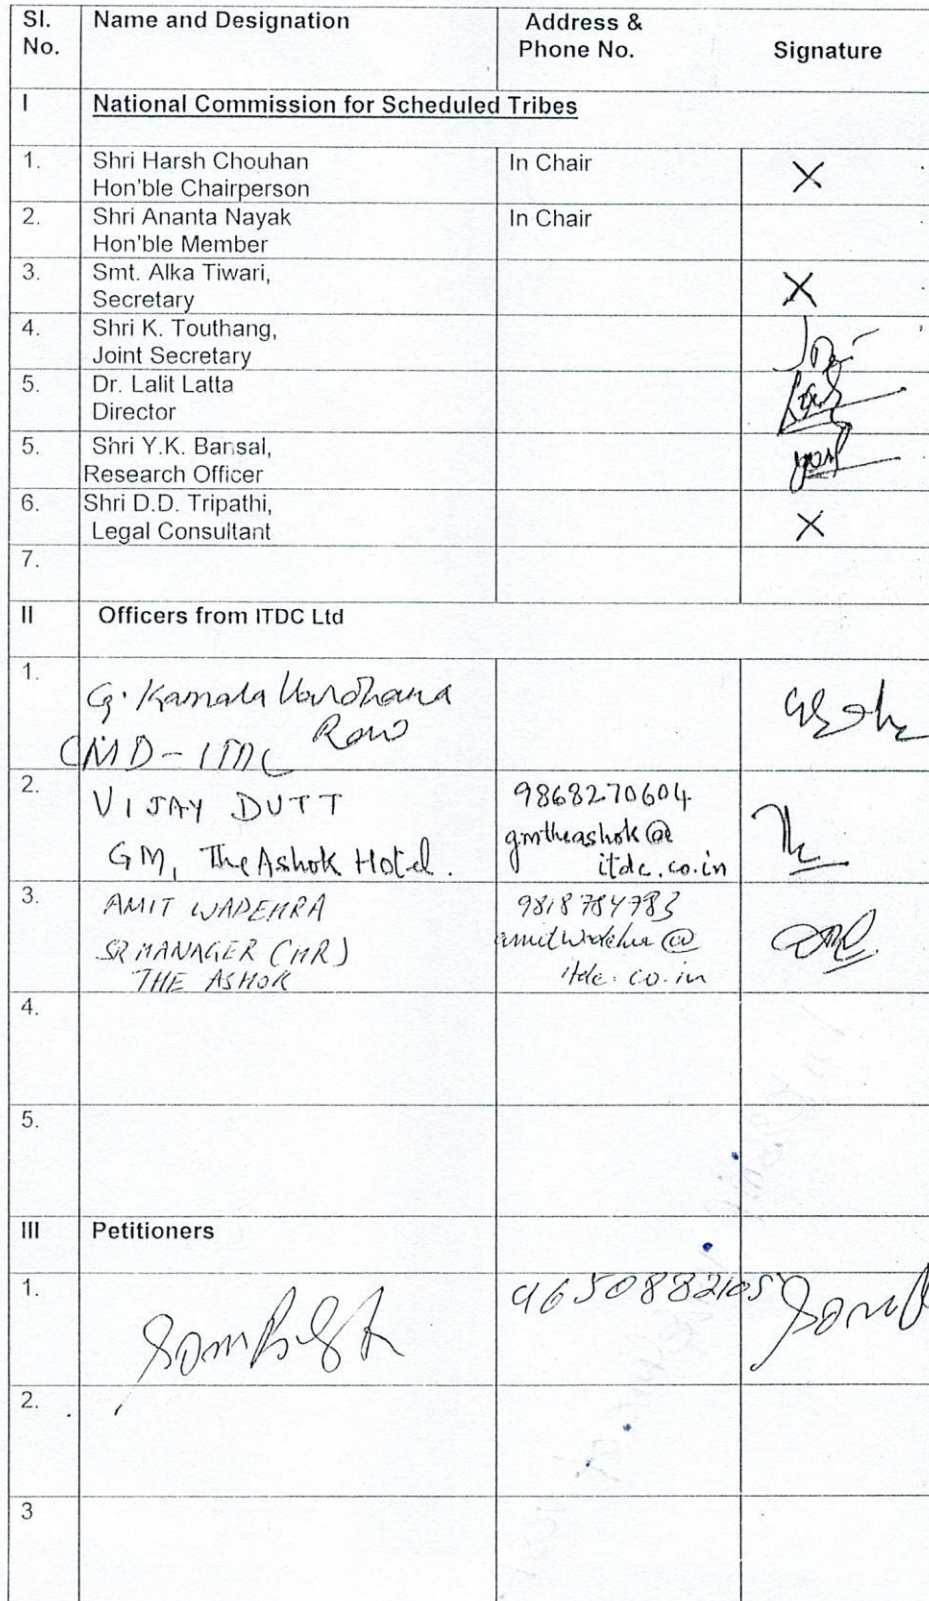 Sl. No. Name and Designation Address & Phone No. Signature
I National Commission for Scheduled Tribes
1. Shri Harsh Chouhan In Chair X
Hon'ble Chairperson
2. Shri Ananta Nayak In Chair
Hon'ble Member
3. Smt. Alka Tiwari, X
Secretary
4. Shri K. Touthang,
Joint Secretary
5. Dr. Lalit Latta
Director
5. Shri Y.K. Bansal,
Research Officer
6. Shri D.D. Tripathi, X
Legal Consultant
7.
II Officers from ITDC Ltd
1. G. Kamala Vardhana
Rao
CMD-ITDC
2. VIJAY DUTT 9868270604
GM, The Ashok Hotel. gmtheashok@
itdc.co.in
3. AMIT WADEHRA 9818784783
SR MANAGER (HR)
THE ASHOK itdc.co.in
4.
5.
III Petitioners
1. 9650882105
2.
3